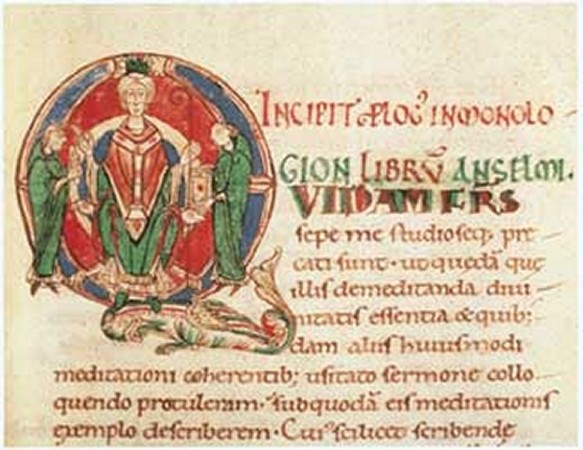 INCIPIT PLOG̅ IN MONOLO
GION LIBRŪ ANSELMI.
QUIDAM FR̅S
sepe me studioseq; pre
cati sunt· ut quedā que
illis de meditanda diui
nitatis essentia & quib;
dam aliis huiusmodi
meditationi coherentib; usitato sermone collo
quendo protuleram· sub quodā eis meditationis
exemplo describerem· Cui᾽ scilicet scribende